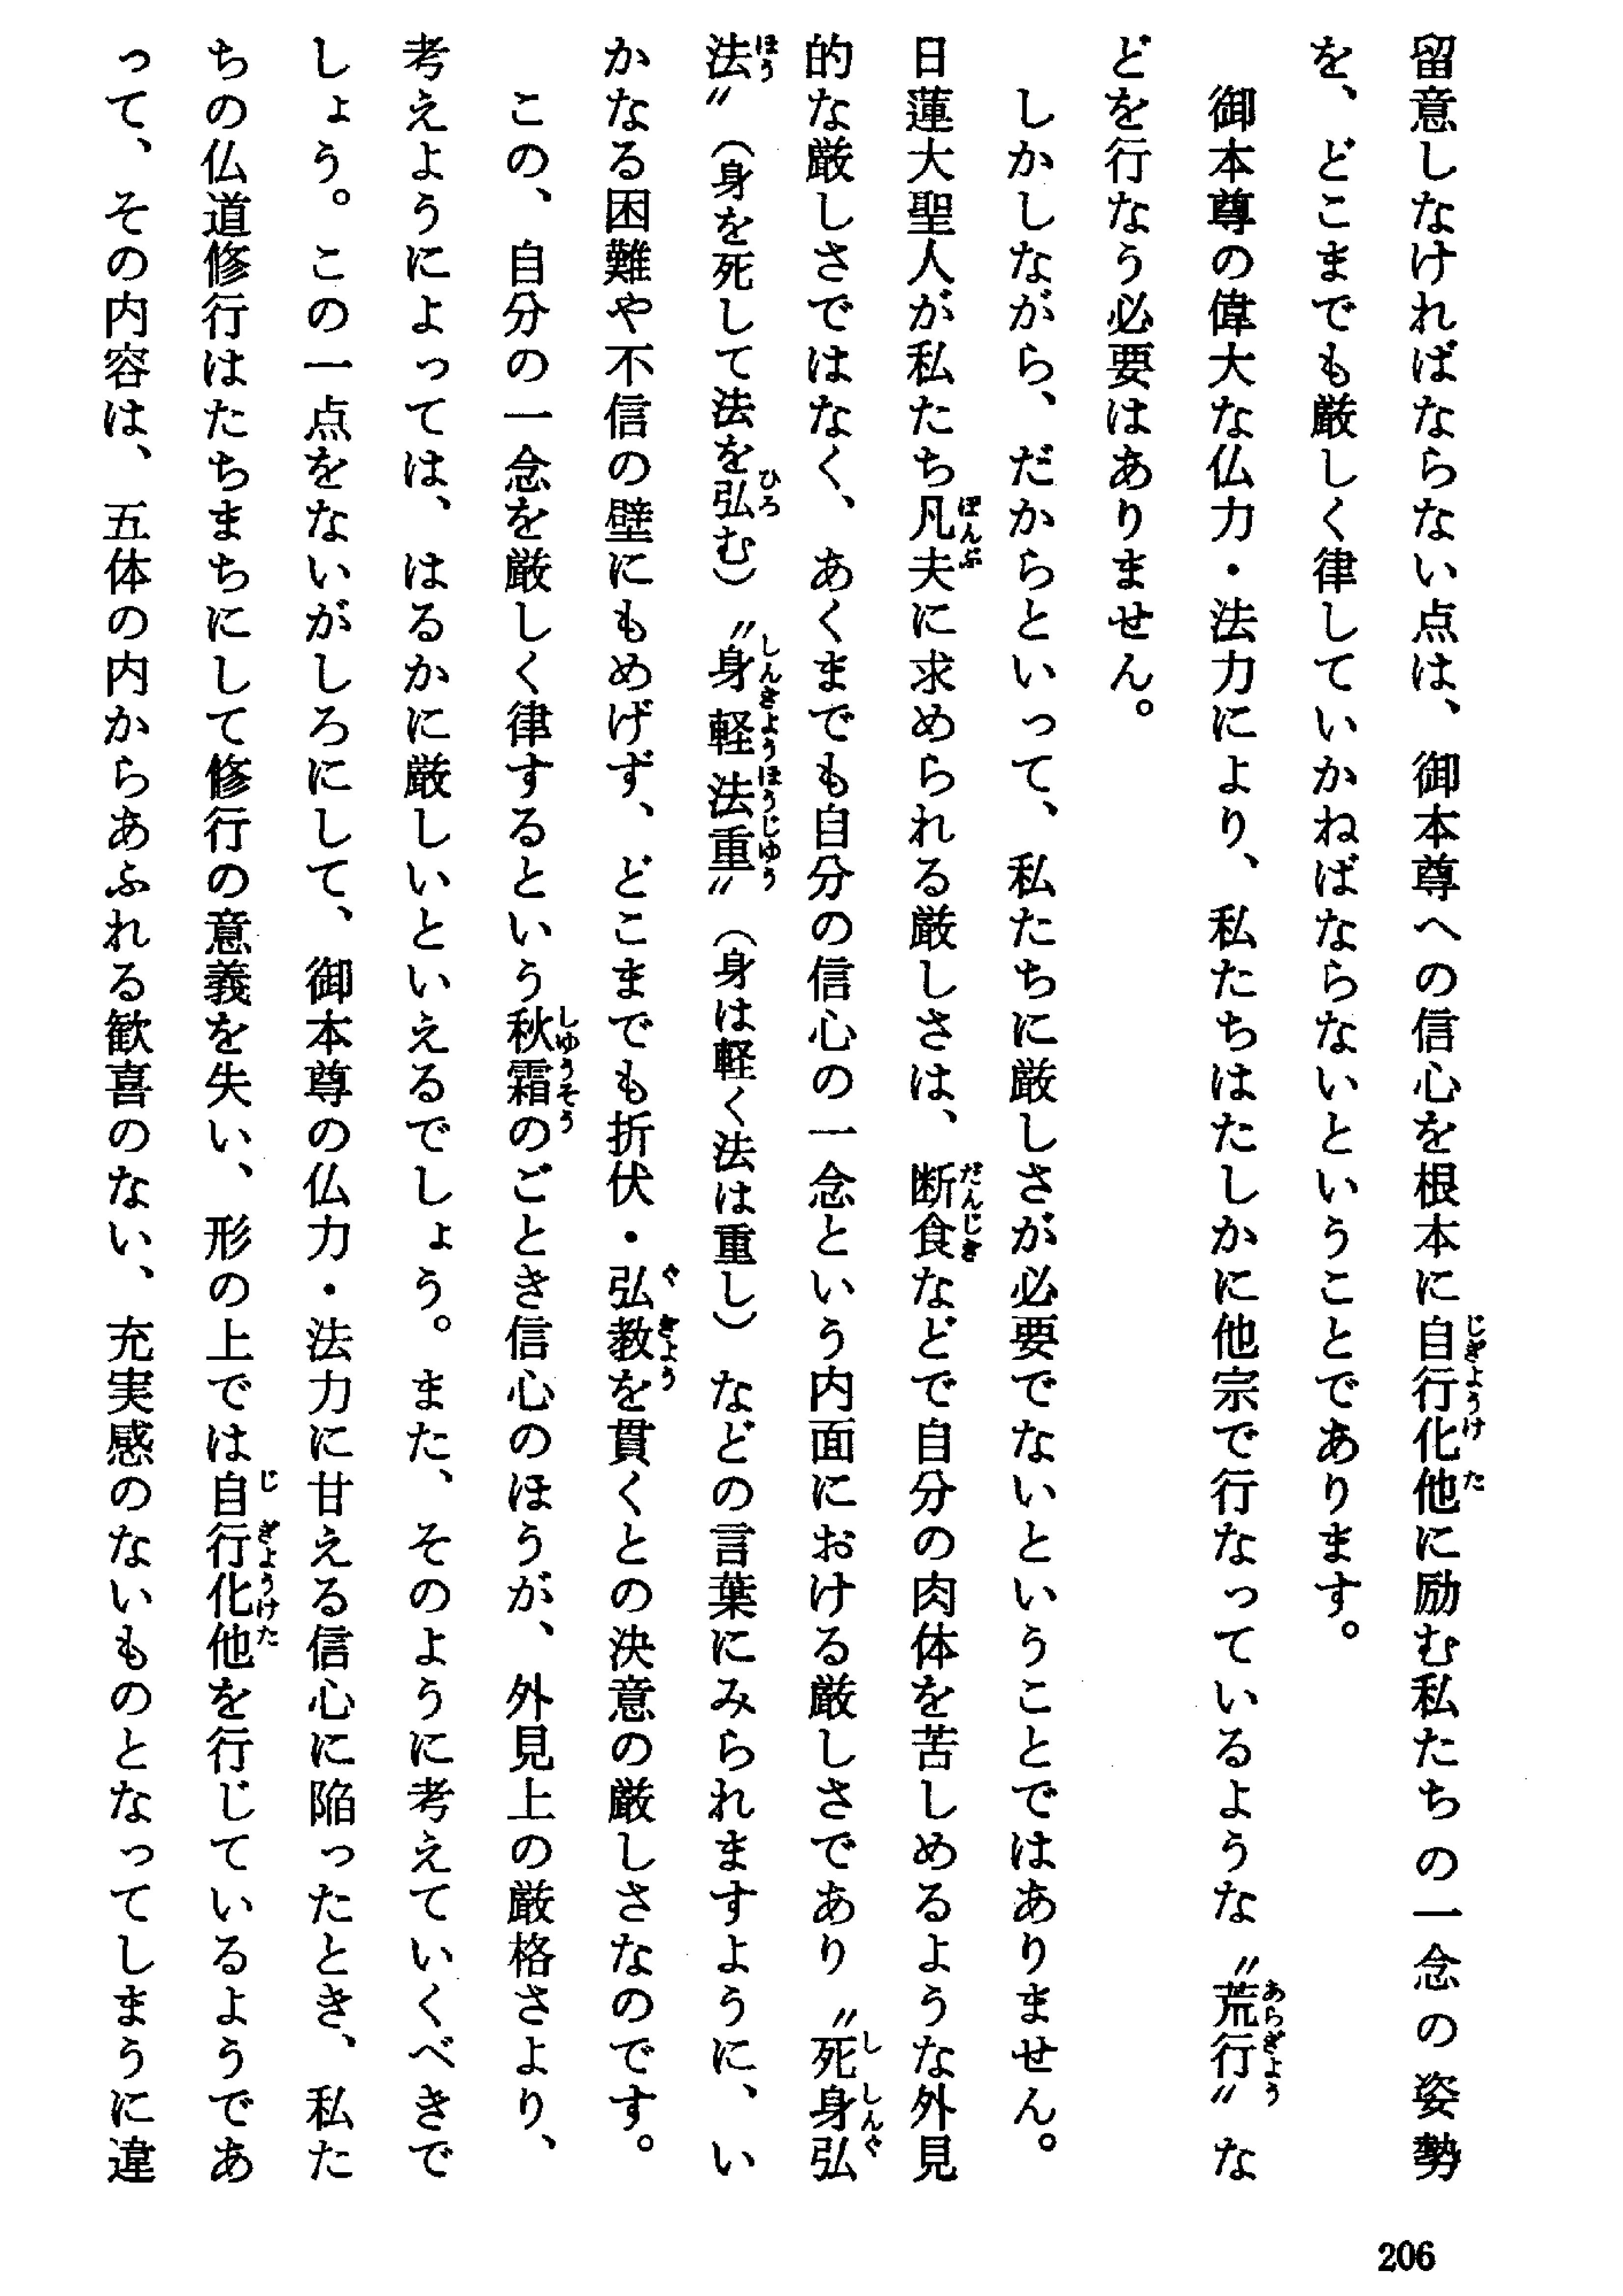 留意しなければならない点は、御本尊への信心を根本に自行化他に励む私たちの一念の姿勢
を、どこまでも厳しく律していかねばならないということであります。
御本尊の偉大な仏力・法力により、私たちはたしかに他宗で行なっているような〝荒行〟な
どを行なう必要はありません。
しかしながら、だからといって、私たちに厳しさが必要でないということではありません。
日蓮大聖人が私たち凡夫に求められる厳しさは、断食などで自分の肉体を苦しめるような外見
的な厳しさではなく、あくまでも自分の信心の一念という内面における厳しさであり〝死身弘
法〟（身を死して法を弘む）〝身軽法重〟（身は軽く法は重し）などの言葉にみられますように、い
かなる困難や不信の壁にもめげず、どこまでも折伏・弘教を貫くとの決意の厳しさなのです。
この、自分の一念を厳しく律するという秋霜のごとき信心のほうが、外見上の厳格さより、
考えようによっては、はるかに厳しいといえるでしょう。また、そのように考えていくべきで
しょう。この一点をないがしろにして、御本尊の仏力・法力に甘える信心に陥ったとき、私た
ちの仏道修行はたちまちにして修行の意義を失い、形の上では自行化他を行じているようであ
って、その内容は、五体の内からあふれる歓喜のない、充実感のないものとなってしまうに違
206